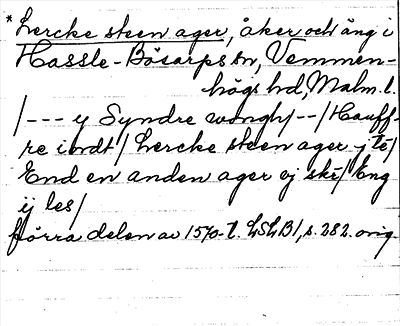 * Lercke steen ager, åker och äng i
Hassle-Bösarps sn, Vemmen-
högs hd, Malm. l.
/--- y Syndre wongh/--/Hauff-
re indt/ Lercke steen ager j té/
End en anden ager ej ské/ Eng
ij les/
förra delen av 1570-t. LSLB1, s. 282. orig.